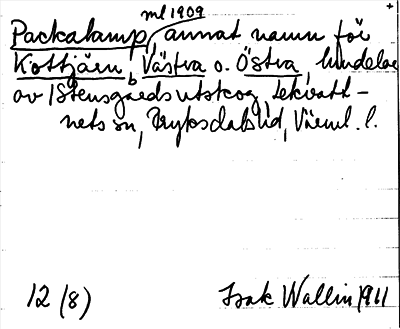 ml 1909
Packalamp, annat namn för
Kottjärn, Västra o. Östra, lundelar
av Stensgårds utskog, Lekvatt-
nets sn, Fryksdals hd, Värml. l.
12 (8) Isak Wallin 1911